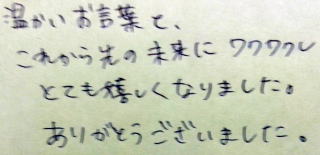 温かいお言葉と、
これから先の未来にワクワクし
とても嬉しくなりました。
ありがとうございました。